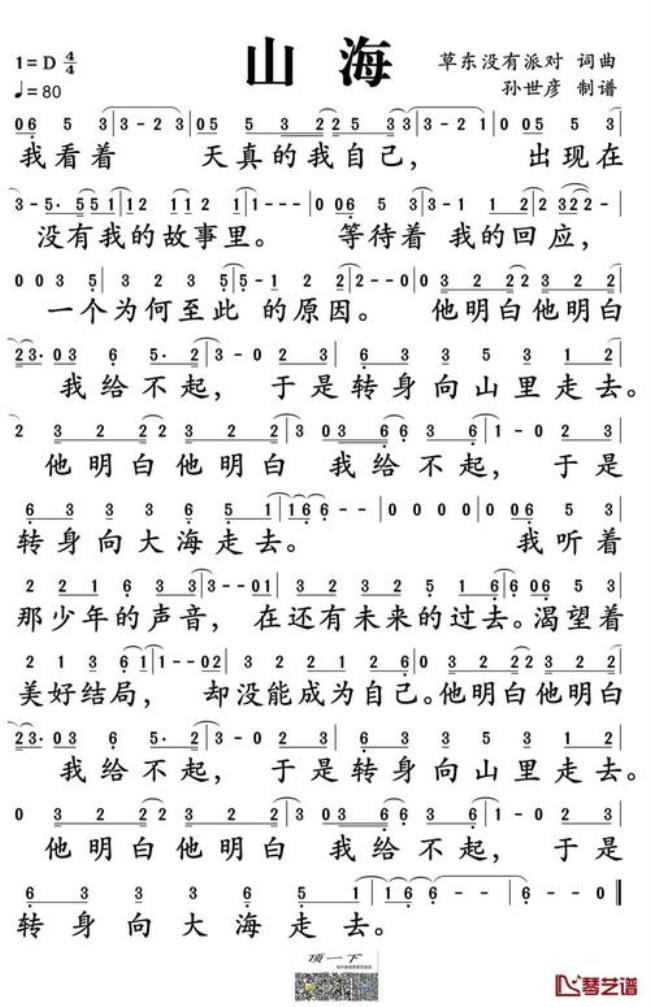 1=D 4/4 山 海 草东没有派对 词曲
♩=80 孙世彦 制谱
06 5 3|3-2 3|05 5 3 2|2 5 3 3|3--2 1|0 05 5 3|
我看着 天真的我自己, 出现在
没有我的故事里。 等待着 我的回应,
0 0 3 5|3 2 3 5|5-1 2 2|2--0|0 3 2 2 3 2 2
一个为何至此 的原因。 他明白他明白
23· 03 6 5· 2|3-0 2 3|6 3 3 5 3 1 2|
我给不起, 于是转身向山里走去。
2 3 2 2 3 2 2|3 03 6 6 3 6|1-0 2 3|
他明白他明白 我给不起, 于是
6 3 3 3 6 5 1|1 6 6--|0 0 0 0|0 06 5 3|
转身向大海走去。 我听着
2 2 1 6 3 3|3--01|3 2 3 2 5 1 6|6 06 5 3|
那少年的声音, 在还有未来的过去。渴望着
2 1 3 6 1|1--02|3 2 2 1 2 6|0 3 2 2 3 2 2
美好结局, 却没能成为自己。他明白他明白
23· 03 6 5· 2|3-0 2 3|6 3 3 5 3 1 2|
我给不起, 于是转身向山里走去。
0 3 2 2 3 2 2|3 03 6 6 3 6|1-0 2 3|
他明白他明白 我给不起, 于是
6 3 3 3 6 5 1|1 6 6--|6--0‖
转身向大海走去。
顶一下
琴艺谱